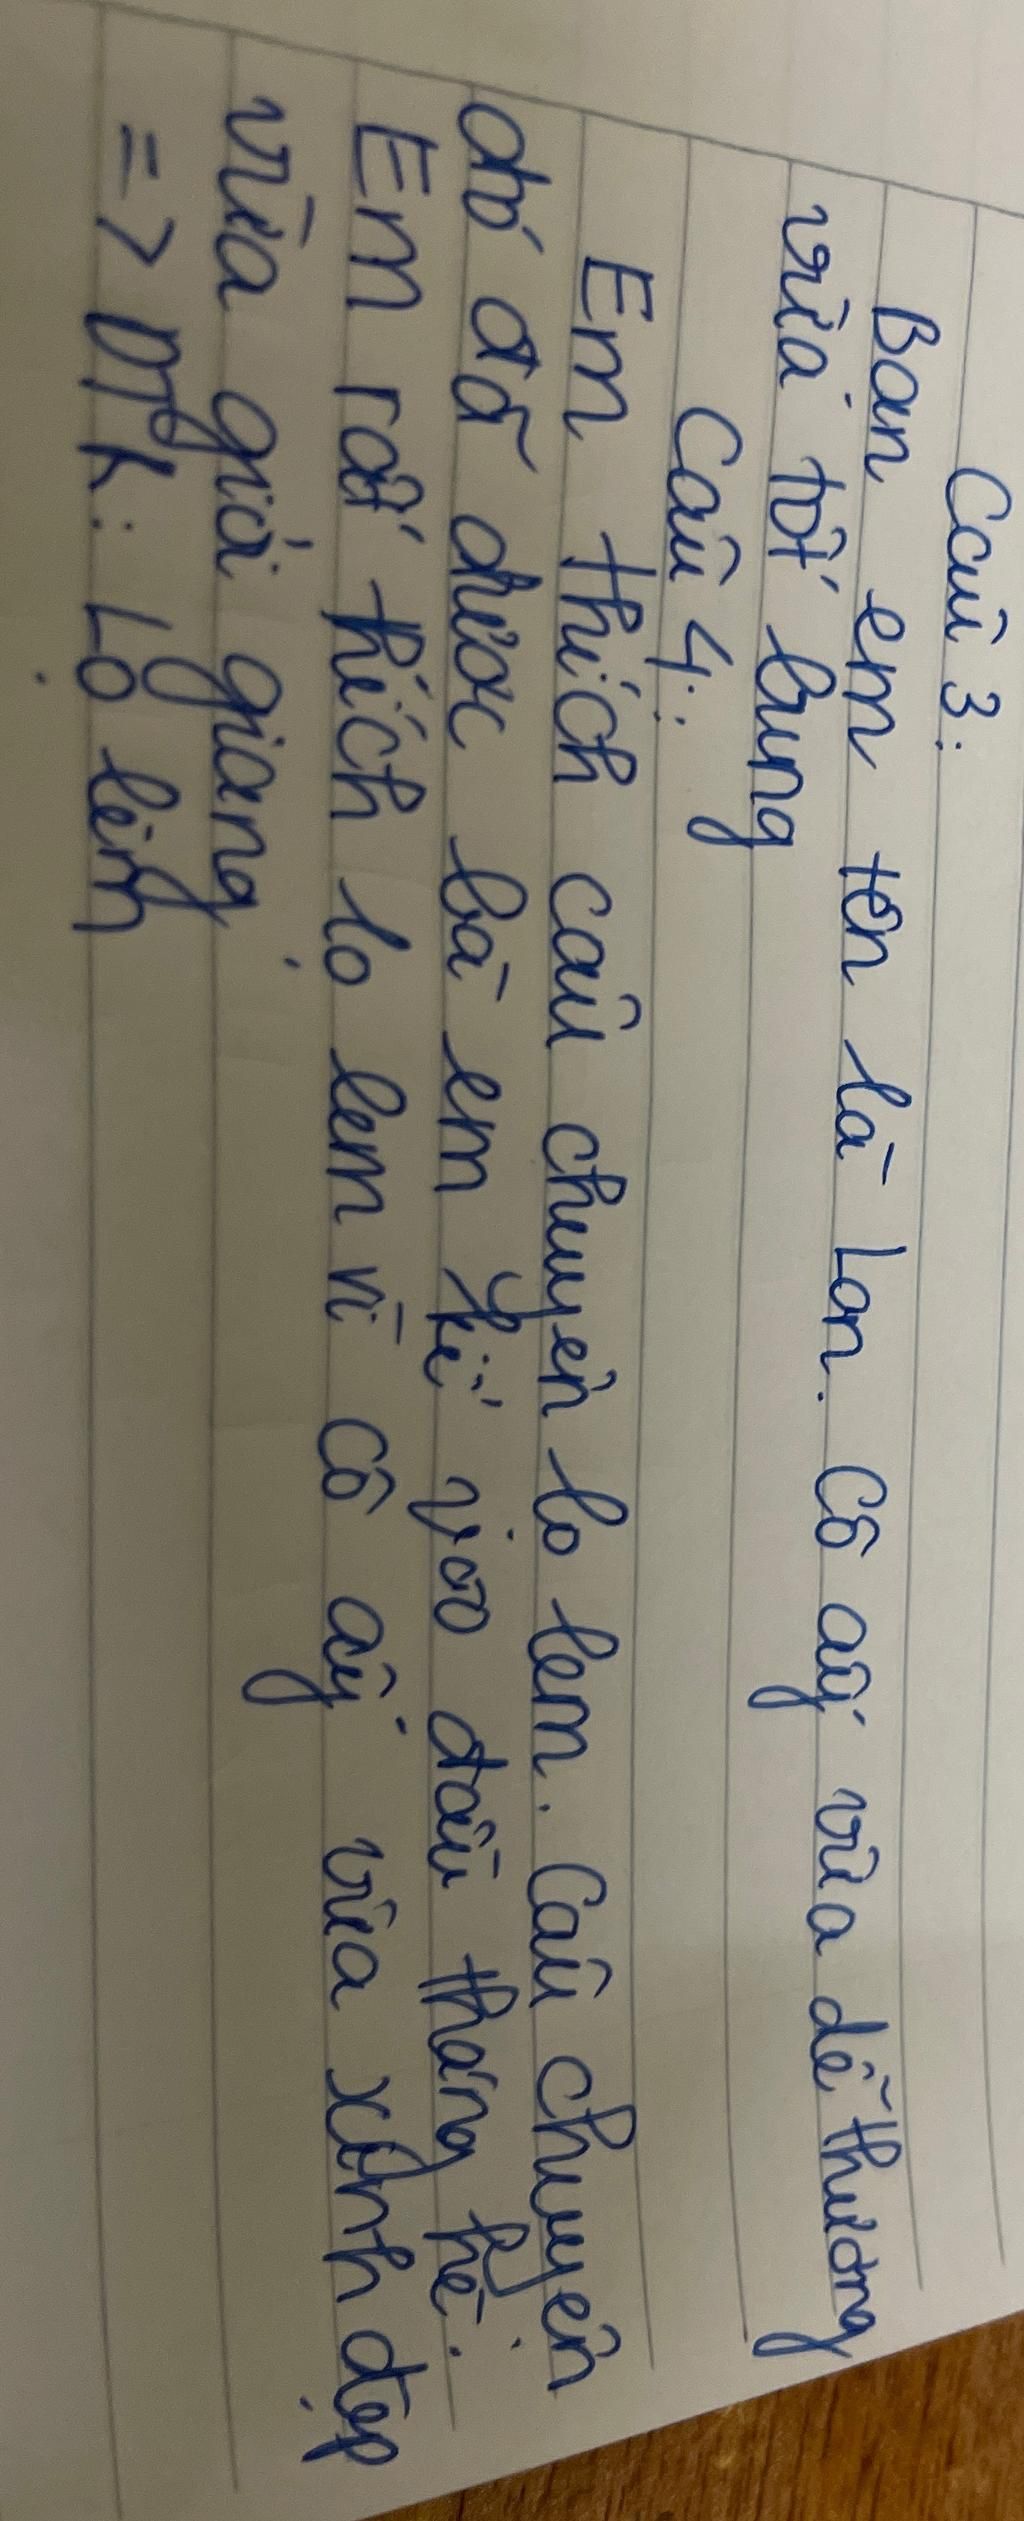 Câu 3:
Bạn em tên là Lan. Cô ấy vừa dễ thương
vừa tốt bụng
Câu 4:
Em thích câu chuyện lo lem. Câu chuyện
đó đã được bà em kể vào đầu tháng hè.
Em rất thích lo lem vì cô ấy vừa xinh đẹp
vừa giỏi giang
=> Đ k: Lọ lem